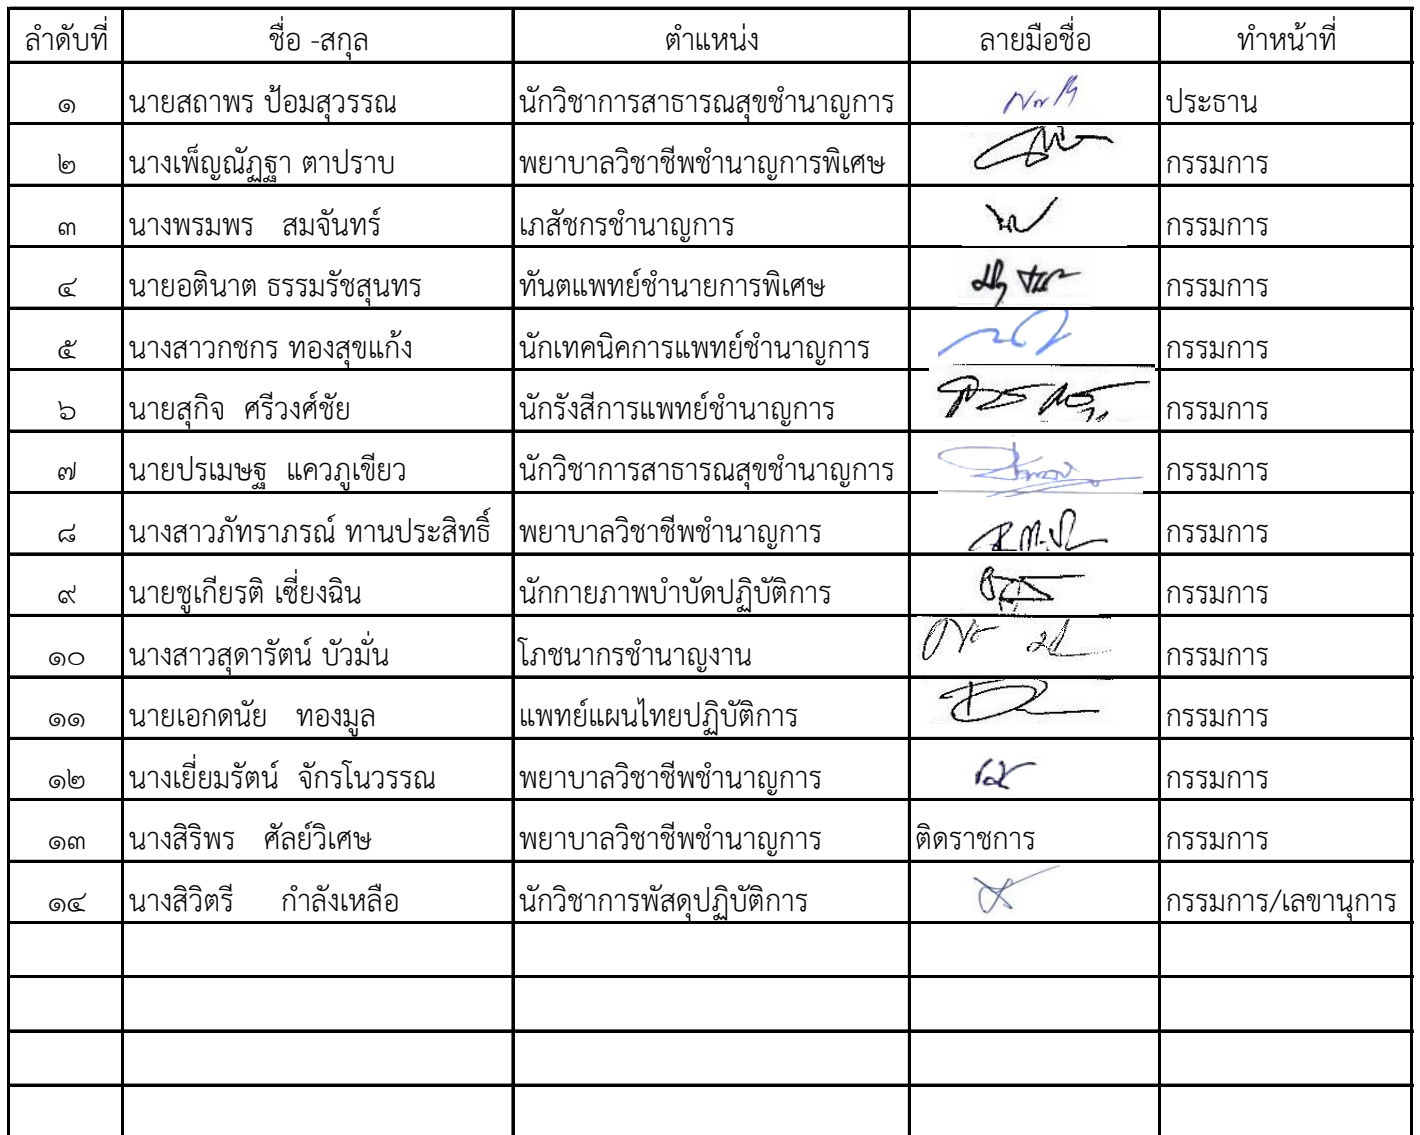 ลำดับที่ ชื่อ -สกุล ตำแหน่ง ลายมือชื่อ ทำหน้าที่
๑ นายสถาพร ป้อมสุวรรณ นักวิชาการสาธารณสุขชำนาญการ ประธาน
๒ นางเพ็ญณัฏฐา ตาปราบ พยาบาลวิชาชีพชำนาญการพิเศษ กรรมการ
๓ นางพรมพร สมจันทร์ เภสัชกรชำนาญการ กรรมการ
๔ นายอตินาต ธรรมรัชสุนทร ทันตแพทย์ชำนายการพิเศษ กรรมการ
๕ นางสาวกชกร ทองสุขแก้ง นักเทคนิคการแพทย์ชำนาญการ กรรมการ
๖ นายสุกิจ ศรีวงศ์ชัย นักรังสีการแพทย์ชำนาญการ กรรมการ
๗ นายปรเมษฐ แควภูเขียว นักวิชาการสาธารณสุขชำนาญการ กรรมการ
๘ นางสาวภัทราภรณ์ ทานประสิทธิ์ พยาบาลวิชาชีพชำนาญการ กรรมการ
๙ นายชูเกียรติ เซี่ยงฉิน นักกายภาพบำบัดปฏิบัติการ กรรมการ
๑๐ นางสาวสุดารัตน์ บัวมั่น โภชนากรชำนาญงาน กรรมการ
๑๑ นายเอกดนัย ทองมูล แพทย์แผนไทยปฏิบัติการ กรรมการ
๑๒ นางเยี่ยมรัตน์ จักรโนวรรณ พยาบาลวิชาชีพชำนาญการ กรรมการ
๑๓ นางสิริพร ศัลย์วิเศษ พยาบาลวิชาชีพชำนาญการ ติดราชการ กรรมการ
๑๔ นางสิวิตรี กำลังเหลือ นักวิชาการพัสดุปฏิบัติการ กรรมการ/เลขานุการ